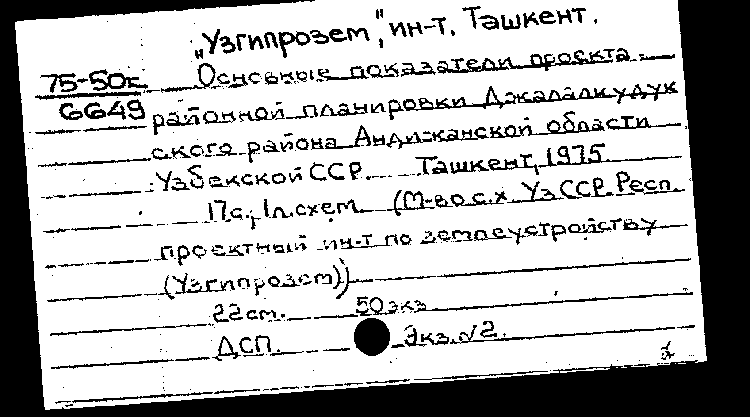 „Узгипрозем", ин-т. Ташкент.
75-50к Основные показатели проекта
6649 районной планировки Джалалкудук
ского района Андижанской области
Узбекской ССР. Ташкент, 1975.
17с., 1л.схем. (М-во с.х. УзССР. Респ.
проектный ин-т по землеустройству
(Узгипрозем))
22см. 50экз
ДСП. Экз.№2.